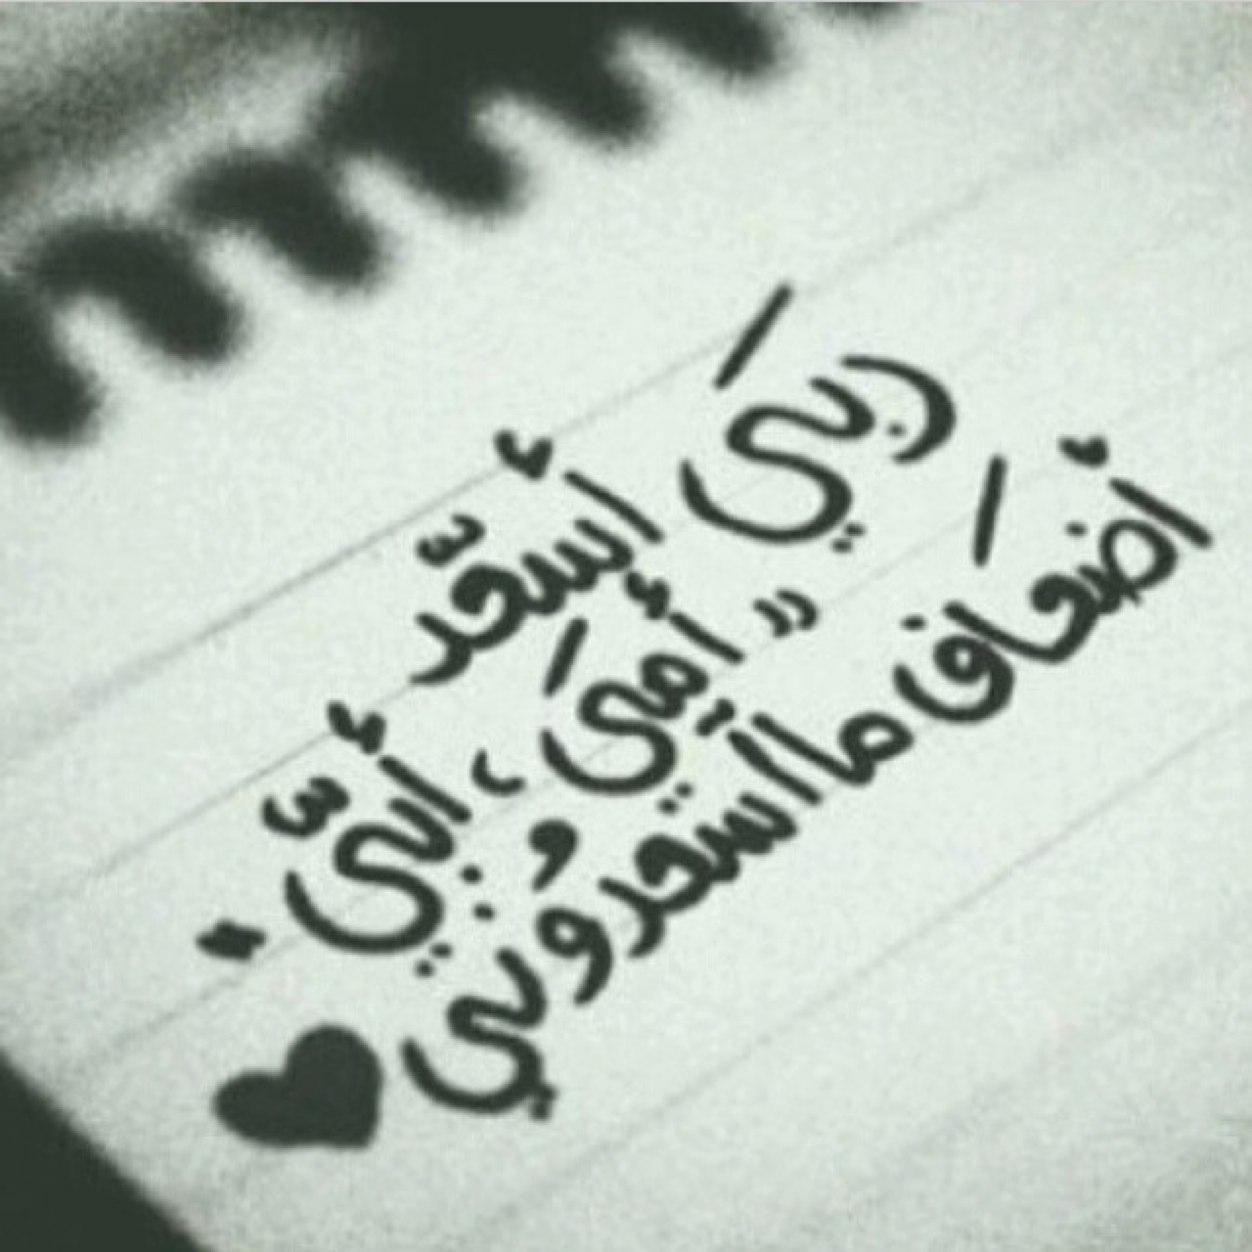 ربيَ أسعّد
” أميَ ، أبيّ .
أضعَاف ماآسعدوُني ♥